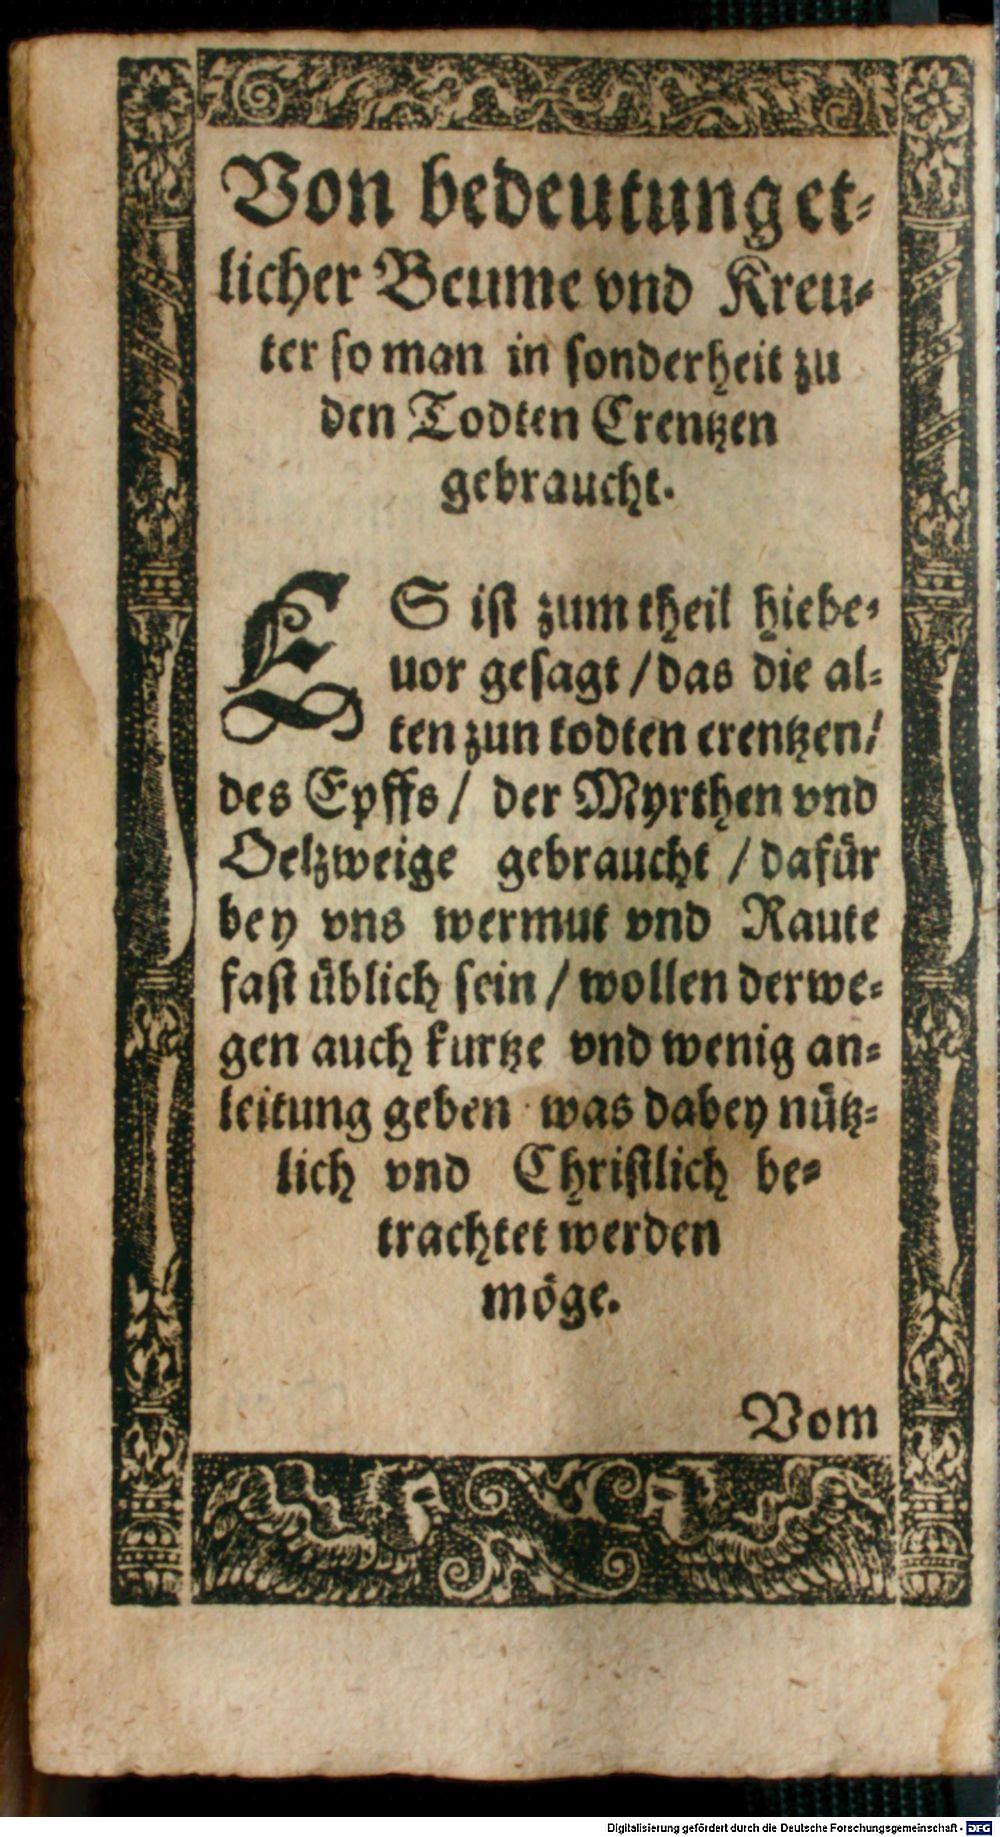 Von bedeutung et-
licher Beume vnd Kreu-
ter so man in sonderheit zu
den Todten Crentzen
gebraucht.
ES ist zum theil hiebe-
uor gesagt / das die al-
ten zun todten crentzen /
des Epffs / der Myrthen vnd
Oelzweige gebraucht / dafür
bey vns wermut vnd Raute
fast üblich sein / wollen derwe-
gen auch kurtze vnd wenig an-
leitung geben was dabey nütz-
lich vnd Christlich be-
trachtet werden
möge.
Vom
Digitalisierung gefördert durch die Deutsche Forschungsgemeinschaft - DFG